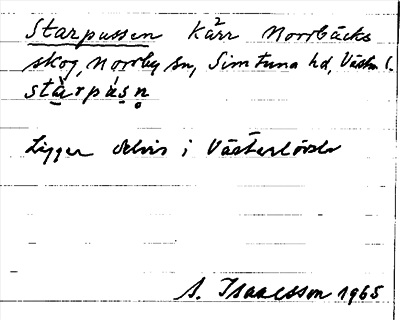 Starpussen Kärr Norrbäcks
skog, Norrby sn, Simtuna hd, Västm l.
stàrpúsn̥
Ligger delvis i Västerlövsta
S. Isaacsson 1965